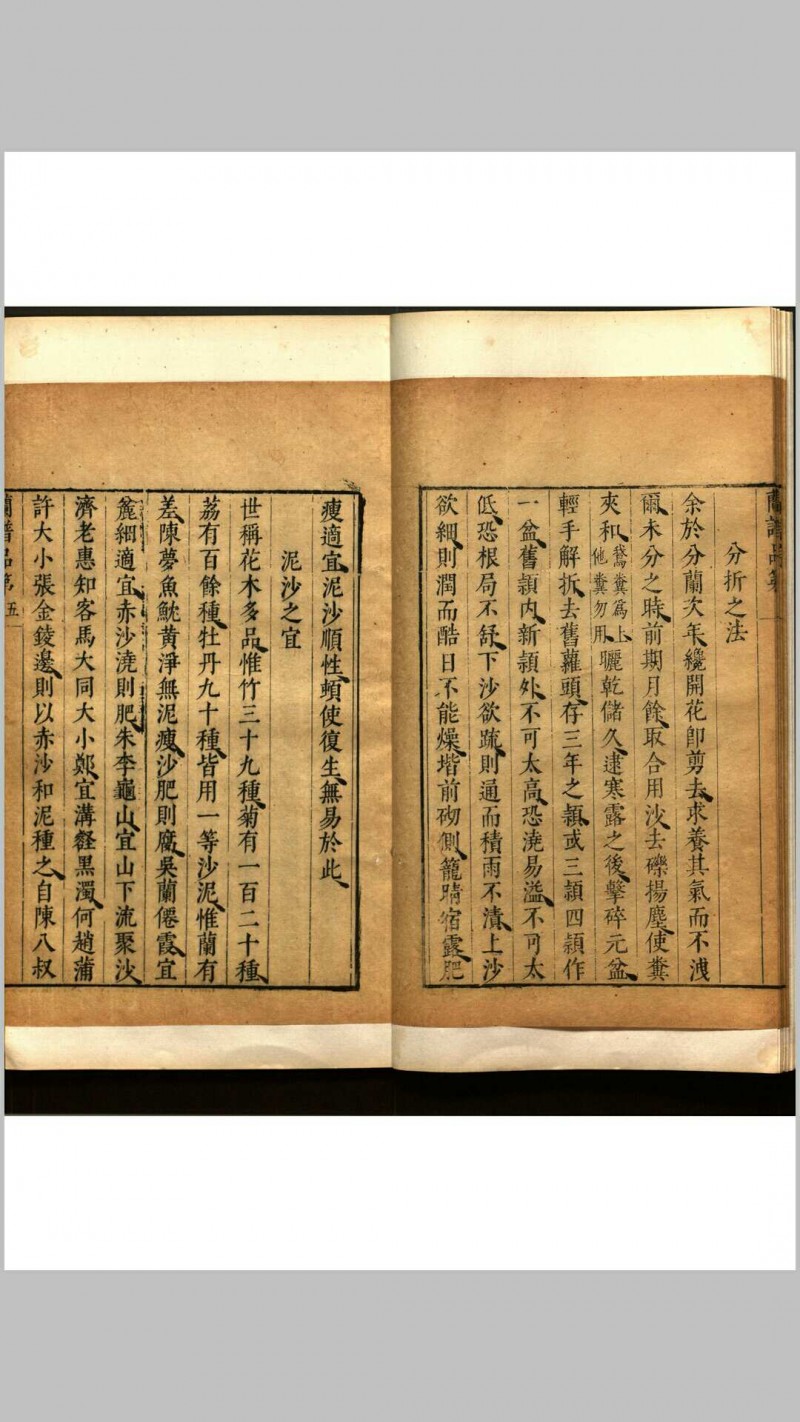 分折之法
余於分蘭次年纔開花卽剪去求養其氣而不洩
爾未分之時前期月餘取合用沙去礫揚塵使糞
夾和鵞糞爲上他糞勿用曬乾儲久逮寒露之後擊碎元盆
輕手解拆去舊蘿頭存三年之頴或三頴四頴作
一盆舊頴内新頴外不可太高恐澆易溢不可太
低恐根局不舒下沙欲疏則通而積雨不漬上沙
欲細則潤而酷日不能燥堦前砌側籠晴宿露肥
瘦適宜泥沙順性蜵使復生無易於此
泥沙之宜
世稱花木多品惟竹三十九種菊有一百二十種
荔有百餘種牡丹九十種皆用一等沙泥惟蘭有
差陳夢魚魫黄淨無泥瘦沙肥則腐吳蘭僊霞宜
麄細適宜赤沙澆則肥朱李竈山宜山下流聚沙
濟老惠知客馬大同大小鄭宜溝壑黒濁何趙蒲
許大小張金錂邉則以赤沙和泥種之自陳八叔
蘭譜品第五